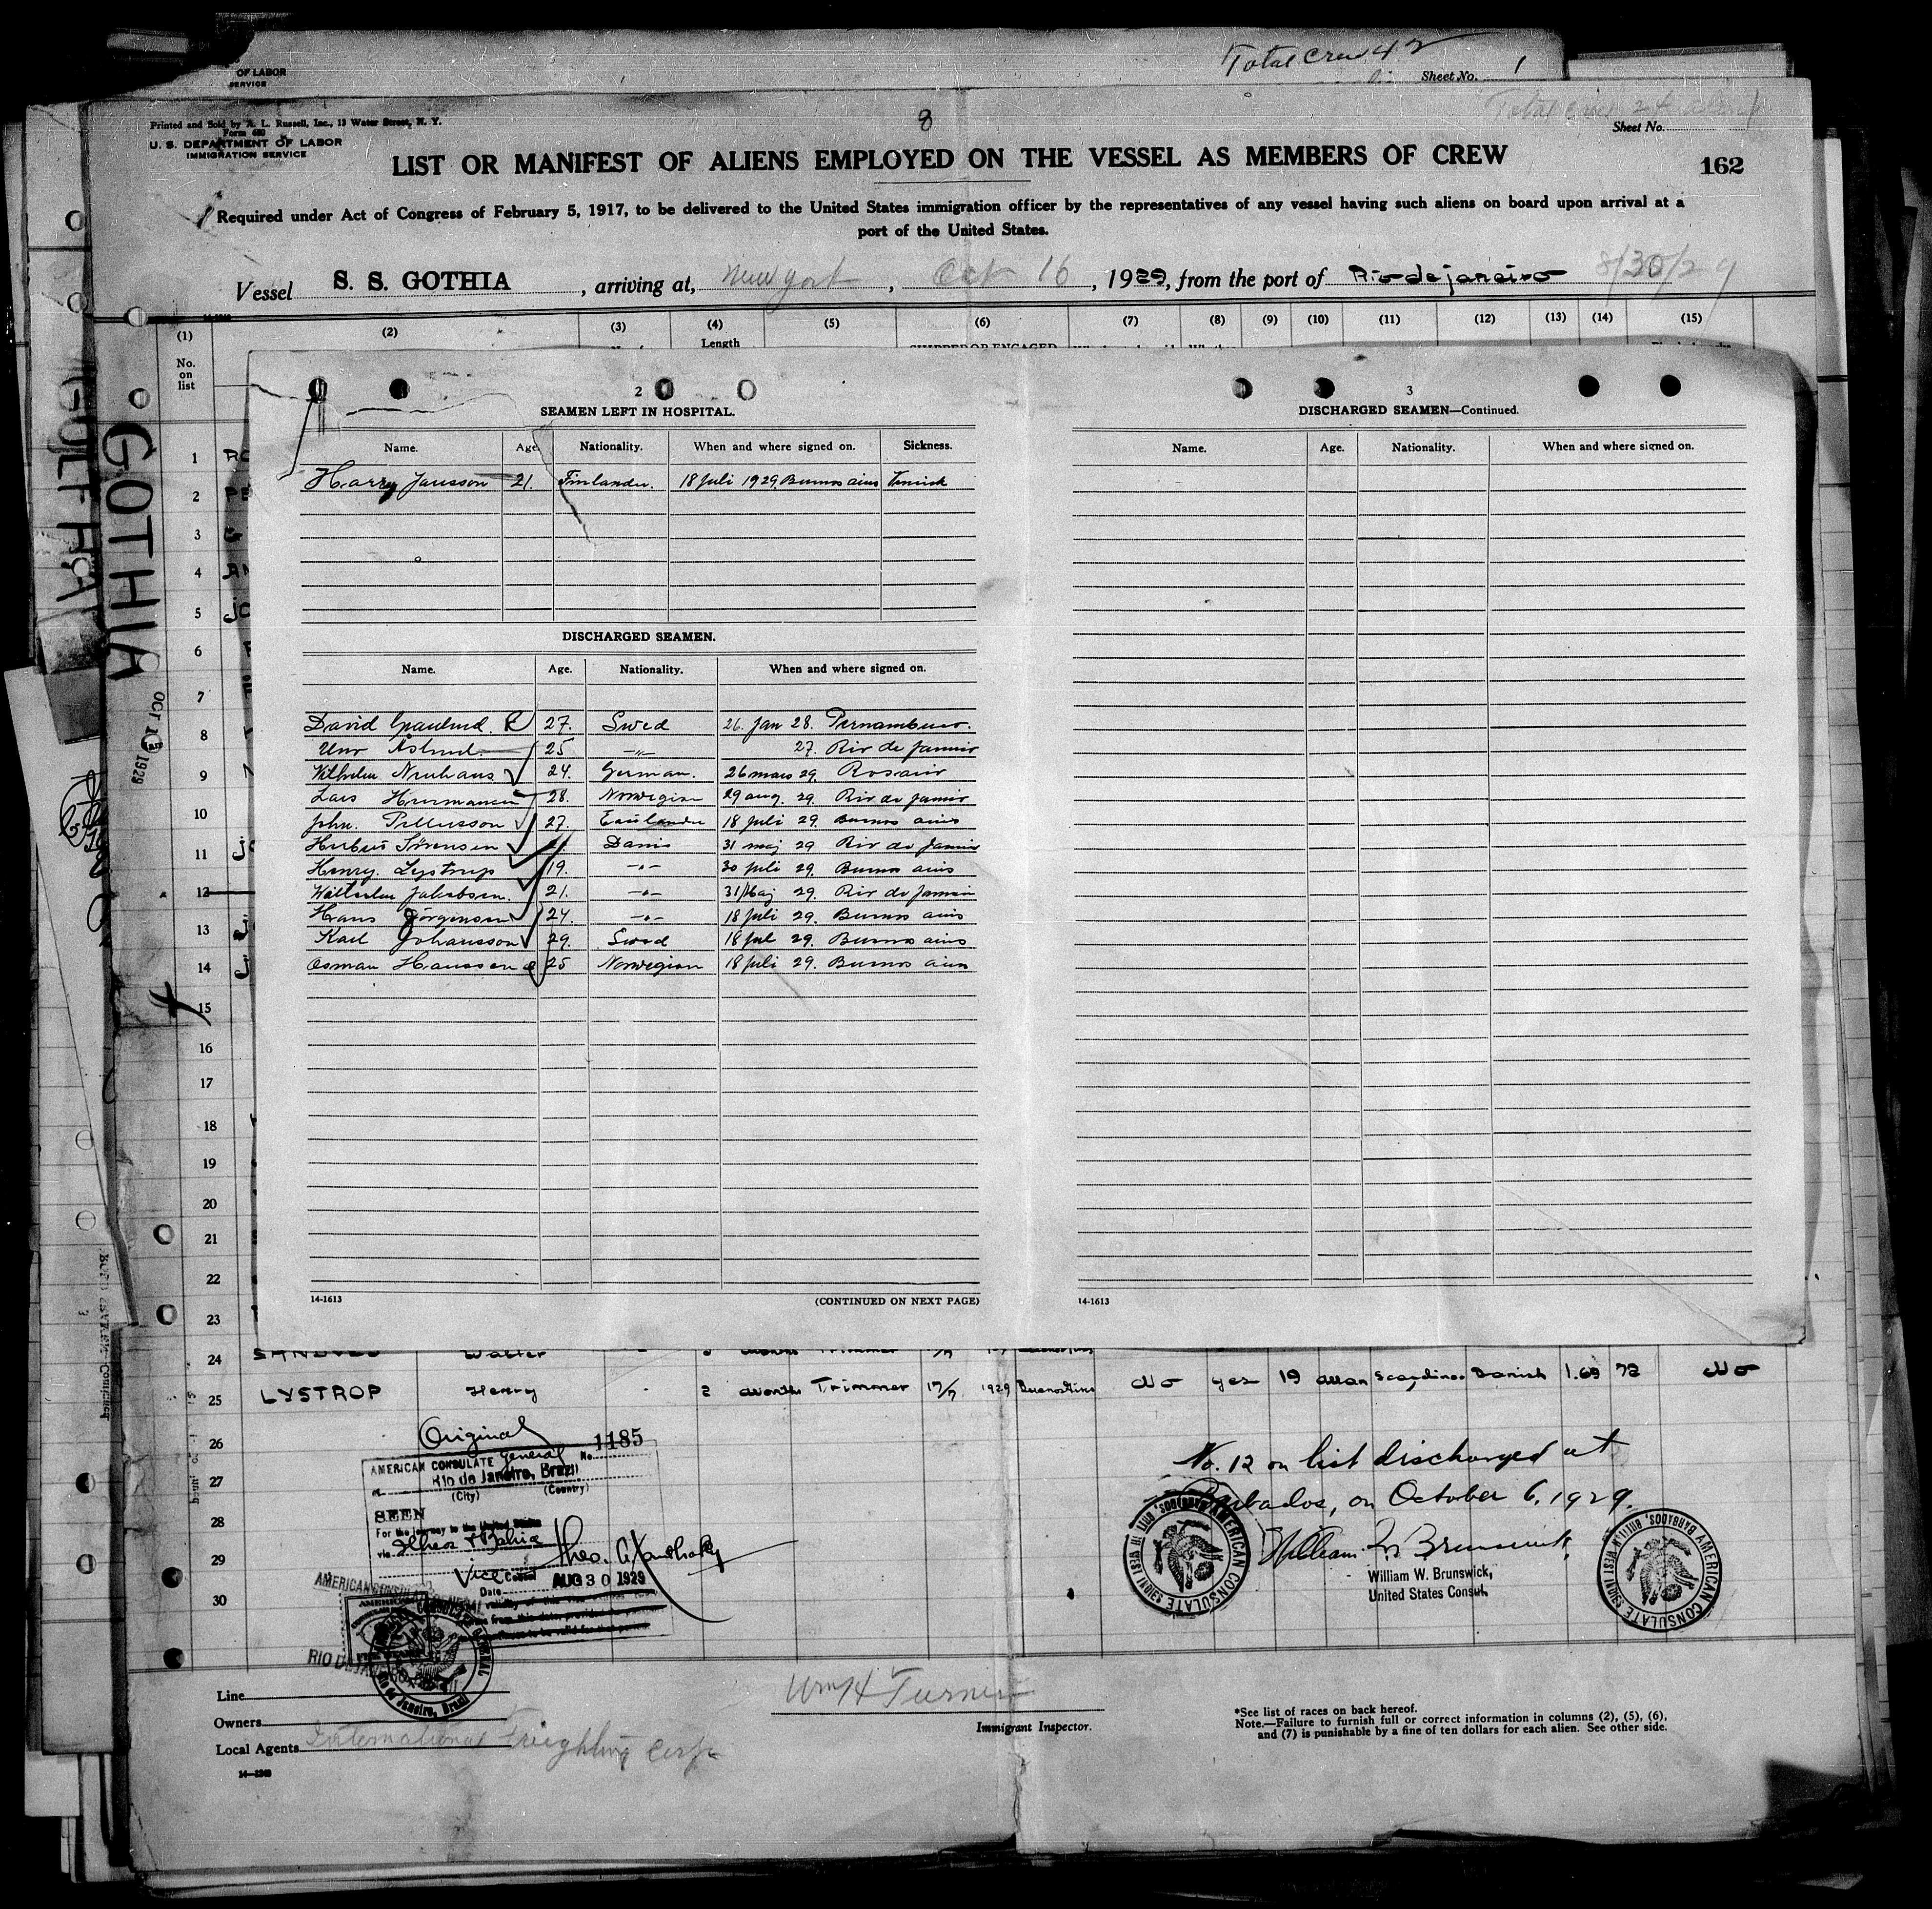 OF LABOR
SERVICE
Total Crew 42
Sheet No. 1
Printed and Sold by A. L. Russell, Inc., 13 Water Street, N. Y.
Form 680
U. S. DEPARTMENT OF LABOR
IMMIGRATION SERVICE
8
Total Crew 24
Sheet No.
LIST OR MANIFEST OF ALIENS EMPLOYED ON THE VESSEL AS MEMBERS OF CREW
162
Required under Act of Congress of February 5, 1917, to be delivered to the United States immigration officer by the representatives of any vessel having such aliens on board upon arrival at a
port of the United States.
Vessel S. S. GOTHIA, arriving at, New York, Oct 16, 1929, from the port of Rio de janeiro 8/30/29
(1) (2) (3) (4) (5) (6) (7) (8) (9) (10) (11) (12) (13) (14) (15)
No. on list
Length
GOTHIA
OCT 1929
2
SEAMEN LEFT IN HOSPITAL.
Name. Age. Nationality. When and where signed on. Sickness.
Harry Jansson 21. Finlander. 18 Juli 1929 Buenos aires
DISCHARGED SEAMEN.
Name. Age. Nationality. When and where signed on.
David 27. Swed 26. Jan 28. Pernambuco.
25 -"- 27. Rio de Janeiro
Wilhelm Neuhaus 24. German. 26 mars 29. Rosario
Lars Hermansen 28. Norwegian 29 aug. 29. Rio de Janeiro
John. 27. 18 Juli 29. Buenos aires
Sörensen Danis 31 maj 29 Rio de Janeiro
Henry. Lystrup 19. -"- 30 juli 29. Buenos aires
Jakobsen. 21. -"- 31 Maj 29. Rio de Janeiro
Hans Jörgensen 24. -"- 18 Juli 29. Buenos aires
Karl Johansson 29. Swed 18 Jul 29. Buenos aires
Osman Hanssen 25 Norwegian 18 Juli 29. Buenos aires
14-1613
(CONTINUED ON NEXT PAGE)
3
DISCHARGED SEAMEN—Continued.
Name. Age. Nationality. When and where signed on.
14-1613
1
2
3
4
5
6
7
8
9
10
11
12
13
14
15
16
17
18
19
20
21
22
23
24 Walter
25 LYSTROP Henry - 2 months Trimmer 17/7 1929 BuenosAires No yes 19 Danish 1.69 72 No
26
27
28
29
30
Original
No. 1185
AMERICAN CONSULATE General
Rio de Janeiro, Brazil
(City) (Country)
SEEN
For the journey to the United States
via Ilheos & Bahia
Vice Consul
Date AUG 30 1929
No. 12 on list discharged at
Barbados, on October 6, 1929.
William W. Brunswick,
United States Consul.
AMERICAN CONSULATE BARBADOS, BRITISH WEST INDIES
AMERICAN CONSULATE BARBADOS, BRITISH WEST INDIES
Line
Owners
Local Agents International Freighting Corp.
14-1240
Wm H Turner
Immigrant Inspector.
*See list of races on back hereof.
Note.—Failure to furnish full or correct information in columns (2), (5), (6),
and (7) is punishable by a fine of ten dollars for each alien. See other side.